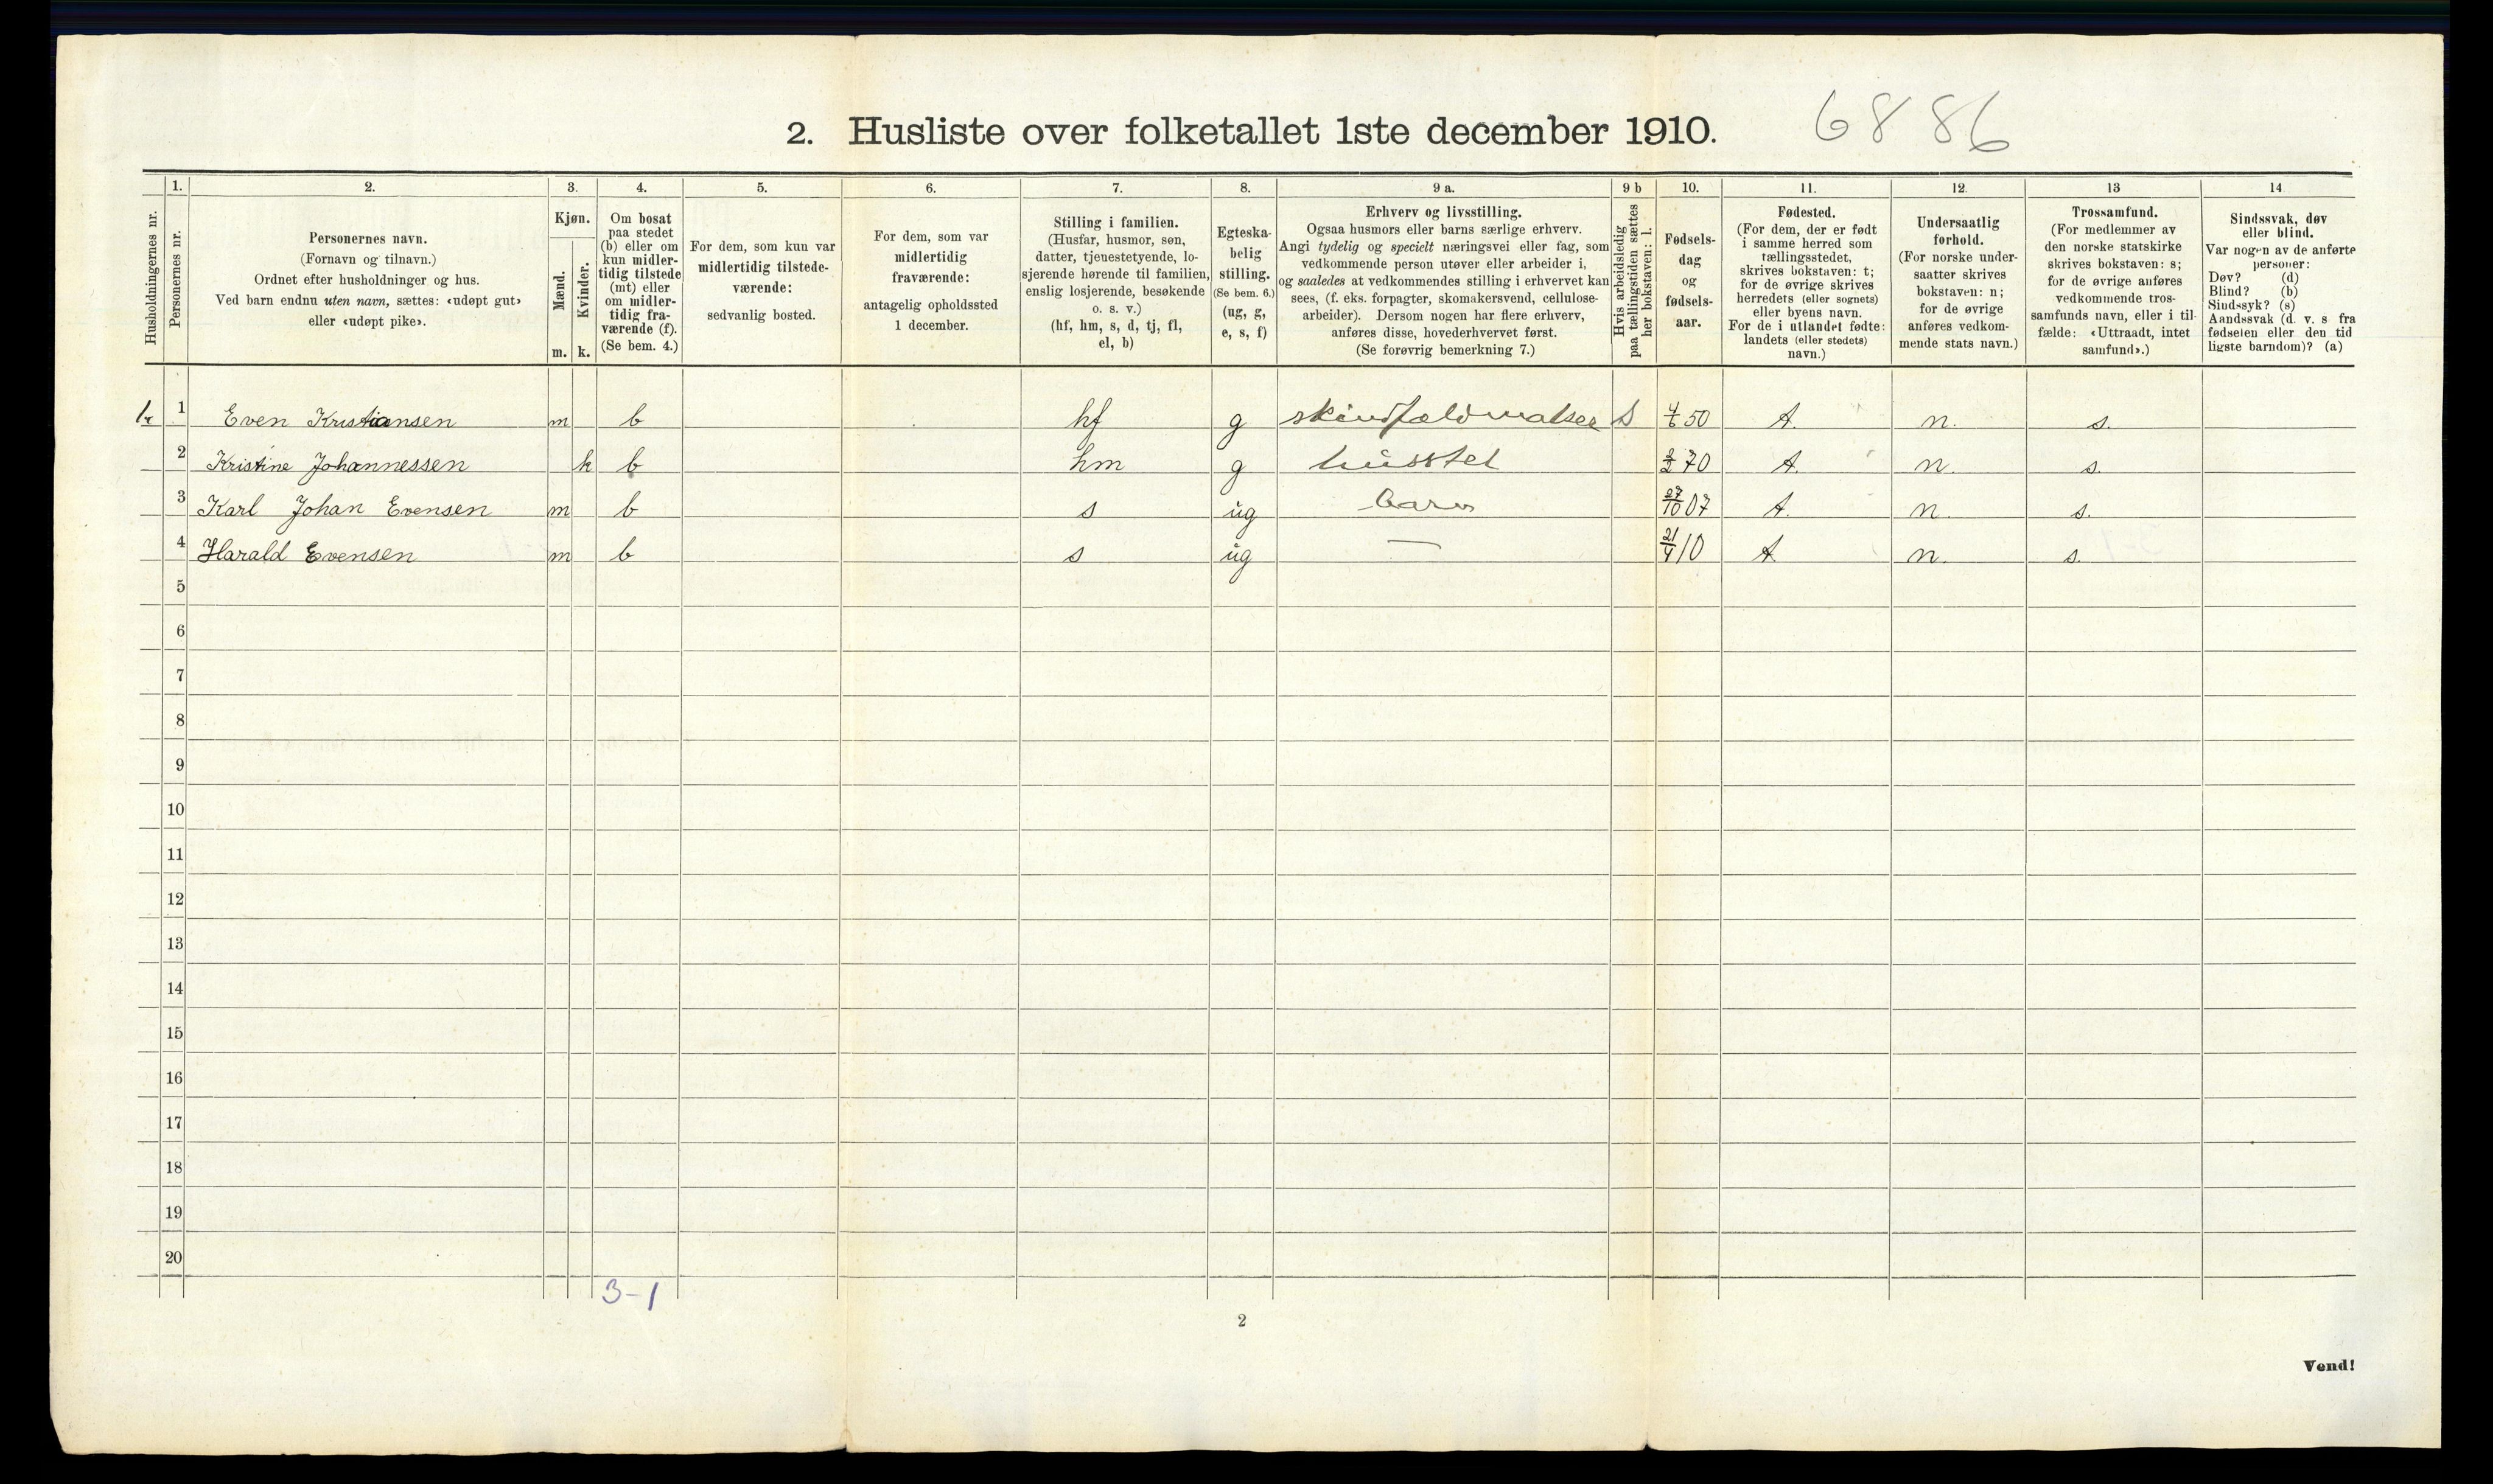 2. Husliste over folketallet 1ste december 1910. 6886
1. 2. 3. 4. 5. 6. 7. 8. 9 a. 9 b 10. 11. 12. 13 14
Husholdningernes nr.
Personernes nr.
Personernes navn.
(Fornavn og tilnavn.)
Ordnet efter husholdninger og hus.
Ved barn endnu uten navn, sættes: «udøpt gut»
eller «udøpt pike».
Kjøn.
Mænd.
Kvinder.
m. k.
Om bosat
paa stedet
(b) eller om
kun midler-
tidig tilstede
(mt) eller
om midler-
tidig fra-
værende (f).
(Se bem. 4.)
For dem, som kun var
midlertidig tilstede-
værende:
sedvanlig bosted.
For dem, som var
midlertidig
fraværende:
antagelig opholdssted
1 december.
Stilling i familien.
(Husfar, husmor, søn,
datter, tjenestetyende, lo-
sjerende hørende til familien,
enslig losjerende, besøkende
o. s. v.)
(hf, hm, s, d, tj, fl,
el, b)
Egteska-
belig
stilling.
(Se bem. 6.)
(ug, g,
e, s, f)
Erhverv og livsstilling.
Ogsaa husmors eller barns særlige erhverv.
Angi tydelig og specielt næringsvei eller fag, som
vedkommende person utøver eller arbeider i,
og saaledes at vedkommendes stilling i erhvervet kan
sees, (f. eks. forpagter, skomakersvend, cellulose-
arbeider). Dersom nogen har flere erhverv,
anføres disse, hovederhvervet først.
(Se forøvrig bemerkning 7.)
Hvis arbeidsledig
paa tællingstiden sættes
her bokstaven: l.
Fødsels-
dag
og
fødsels-
aar.
Fødested.
(For dem, der er født
i samme herred som
tællingsstedet,
skrives bokstaven: t;
for de øvrige skrives
herredets (eller sognets)
eller byens navn.
For de i utlandet fødte:
landets (eller stedets)
navn.)
Undersaatlig
forhold.
(For norske under-
saatter skrives
bokstaven: n;
for de øvrige
anføres vedkom-
mende stats navn.)
Trossamfund.
(For medlemmer av
den norske statskirke
skrives bokstaven: s;
for de øvrige anføres
vedkommende tros-
samfunds navn, eller i til-
fælde: «Uttraadt, intet
samfund».)
Sindssvak, døv
eller blind.
Var nogen av de anførte
personer:
Døv? (d)
Blind? (b)
Sindssyk? (s)
Aandssvak (d. v. s fra
fødselen eller den tid
ligste barndom)? (a)
1 Even Kristiansen m b hf g 4/6 50 t. n. s.
2 Kristine Johannessen k b hm g husstel 2/2 70 t. n. s.
3 Karl Johan Evensen m b s ug barn 27/10 07 t. n. s.
4 Harald Evensen m b s ug — 21/4 10 t. n. s.
5
6
7
8
9
10
11
12
13
14
15
16
17
18
19
20
3-1
2
Vend!